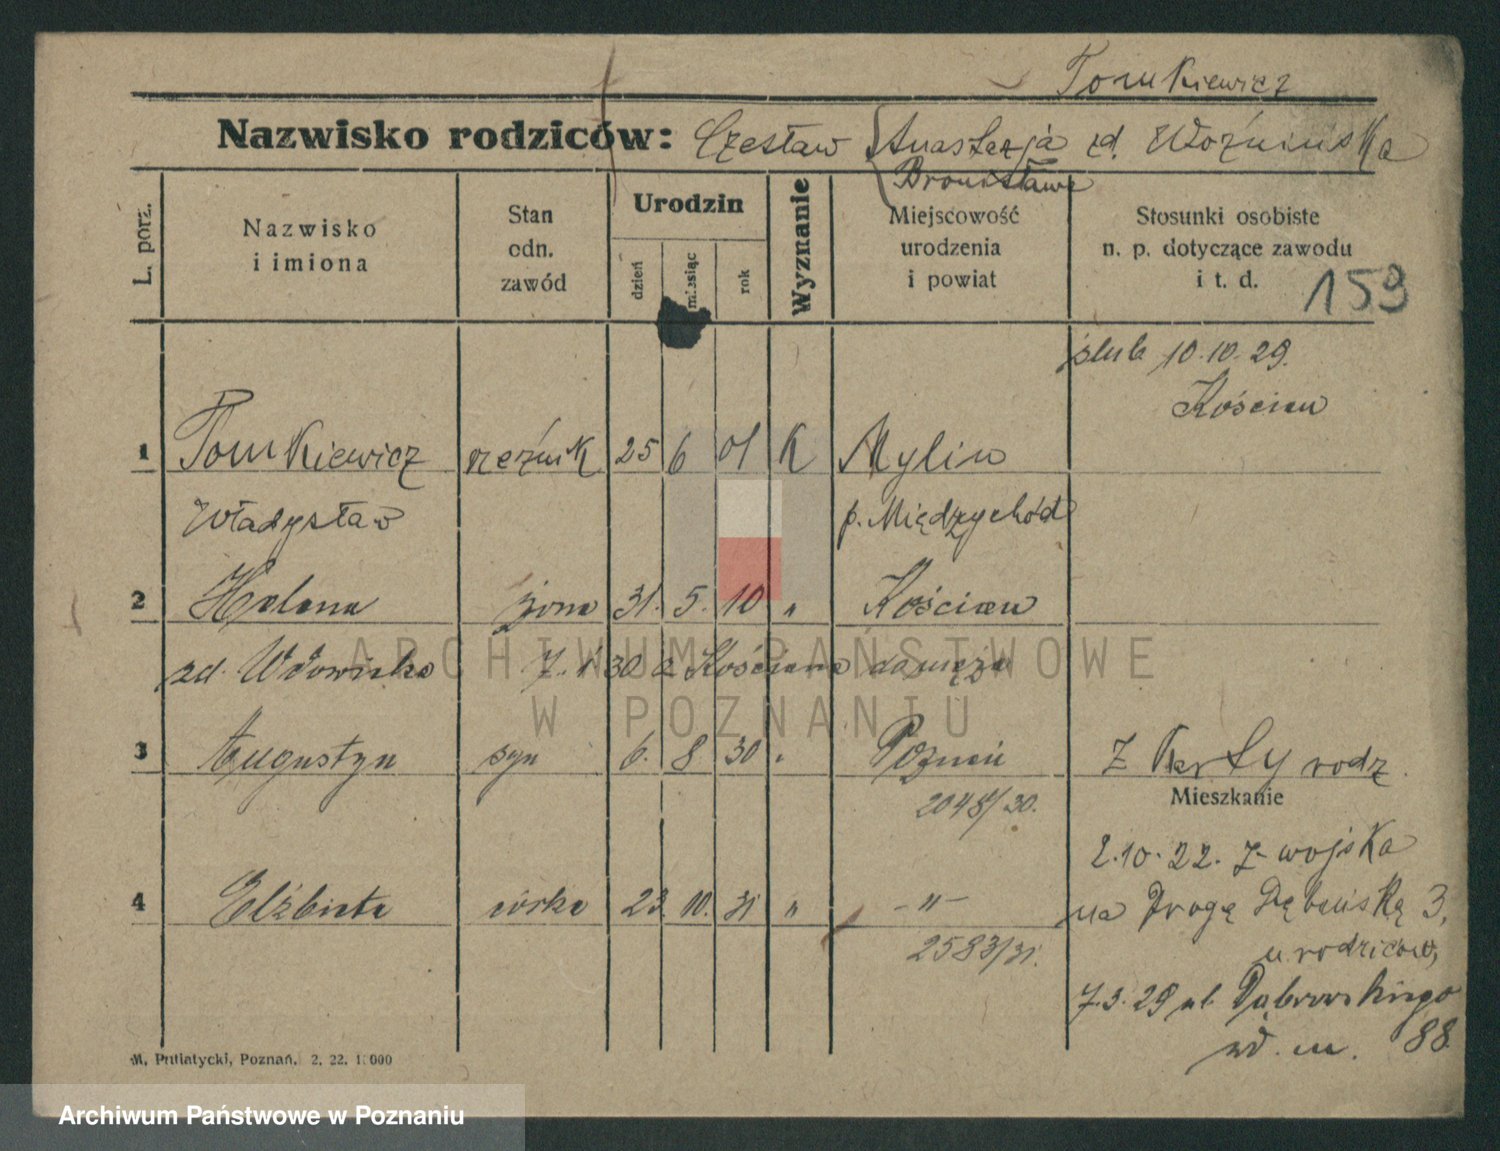 Tomkiewicz
Nazwisko rodziców: Czesław Anastazja zd. Woźnińska
Bronisława
L. porz.
Nazwisko
i imiona
Stan
odn.
zawód
Urodzin
dzień
miesiąc
rok
Wyznanie
Miejscowość
urodzenia
i powiat
Stosunki osobiste
n. p. dotyczące zawodu
i t. d.
159
ślub 10.10.29.
Kościan
1 Tomkiewicz rzeźnik 25 6 01 K Mylin
Władysław p. Międzychód
2 Helena żona 31. 5. 10 " Kościan
zd. Wdowicka 7.1 30 z Kościana do męża
3 Augustyn syn 6. 8 30 " Poznań z Karty rodz.
2048/30.
Mieszkanie
2.10.22. z wojska
4 Elżbieta córka 23. 10. 31 " -"- na Drogę Dębińską 3,
2583/31.
u rodziców,
7.3.29 ul. Dąbrowskiego
88
M. Putiatycki, Poznań. 2. 22. 1.000
ARCHIWUM PAŃSTWOWE
W POZNANIU
Archiwum Państwowe w Poznaniu